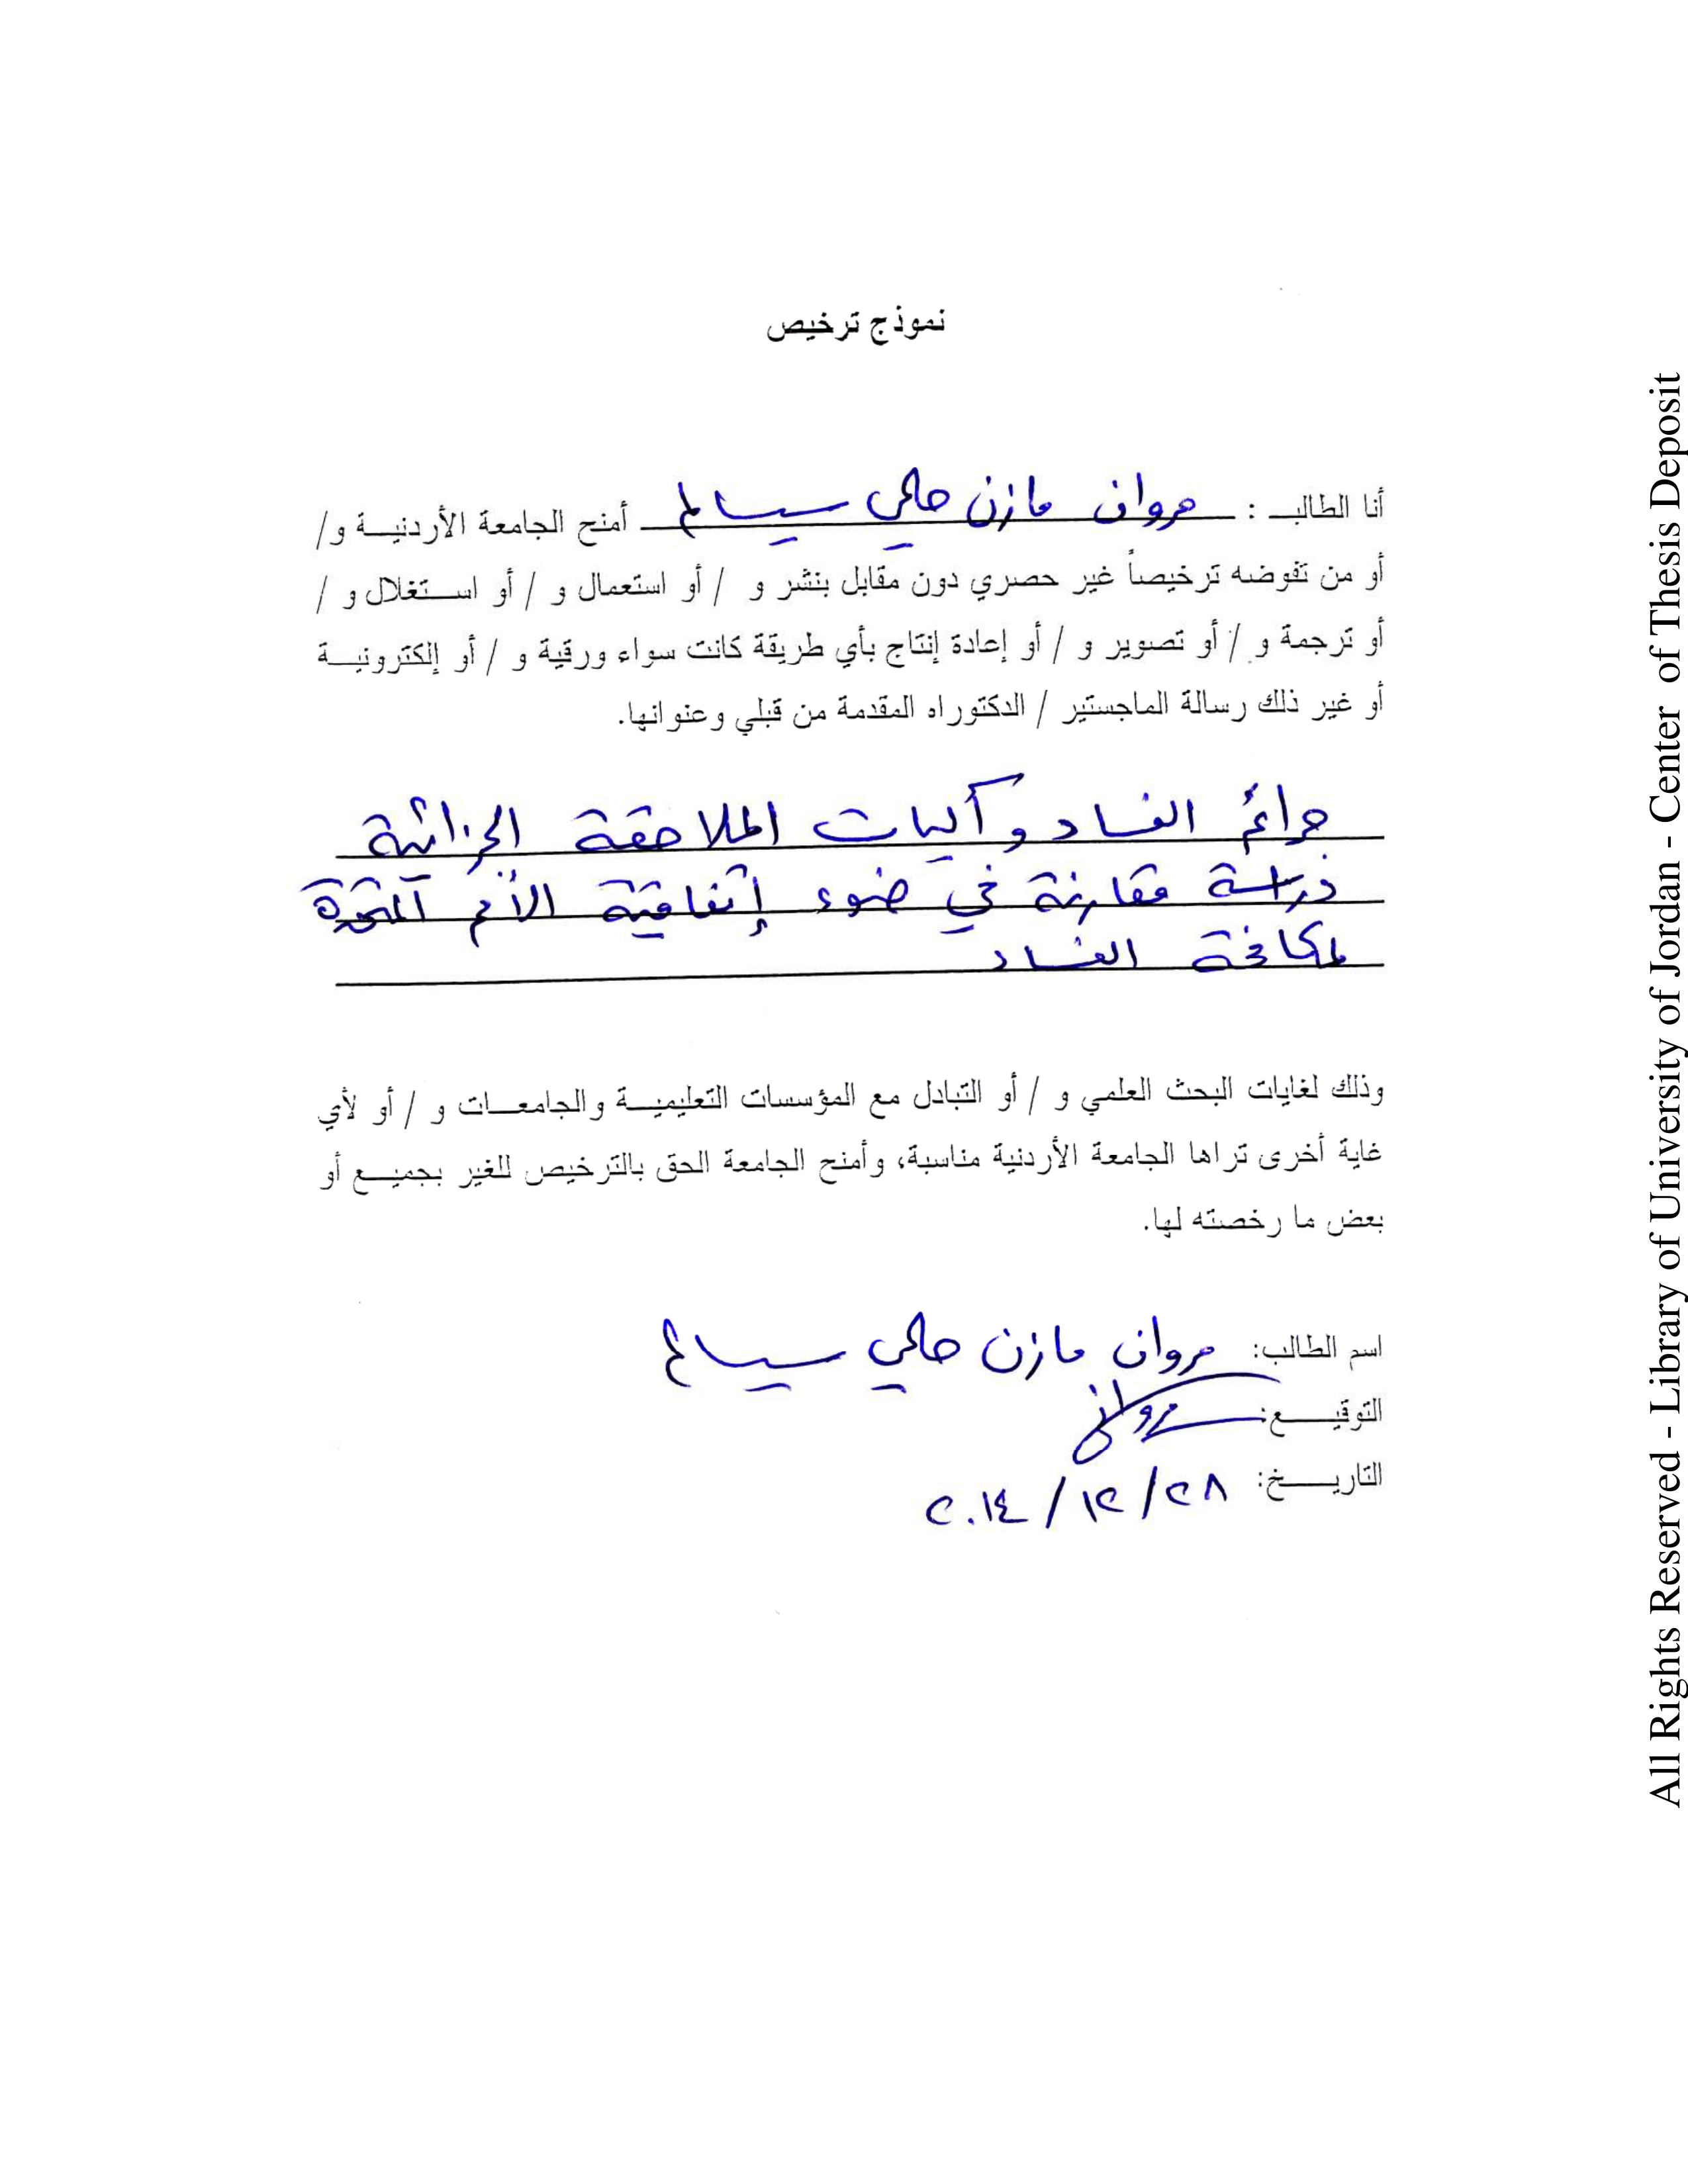 نموذج ترخيص
أنا الطالب : مروان مازن حلمي سيسالم أمنح الجامعة الأردنية و/
أو من تفوضه ترخيصاً غير حصري دون مقابل بنشر و / أو استعمال و / أو استغلال و /
أو ترجمة و / أو تصوير و / أو إعادة إنتاج بأي طريقة كانت سواء ورقية و / أو إلكترونية
أو غير ذلك رسالة الماجستير / الدكتوراه المقدمة من قبلي وعنوانها.
جرائم الفساد وآليات الملاحقة الجزائية
دراسة مقارنة في ضوء إتفاقية الأمم المتحدة
لمكافحة الفساد
وذلك لغايات البحث العلمي و / أو التبادل مع المؤسسات التعليمية والجامعات و / أو لأي
غاية أخرى تراها الجامعة الأردنية مناسبة، وأمنح الجامعة الحق بالترخيص للغير بجميع أو
بعض ما رخصته لها.
اسم الطالب: مروان مازن حلمي سيسالم
التوقيع: مروان
التاريخ: ٢٨/ ١٢/ ٢٠١٤
All Rights Reserved - Library of University of Jordan - Center of Thesis Deposit